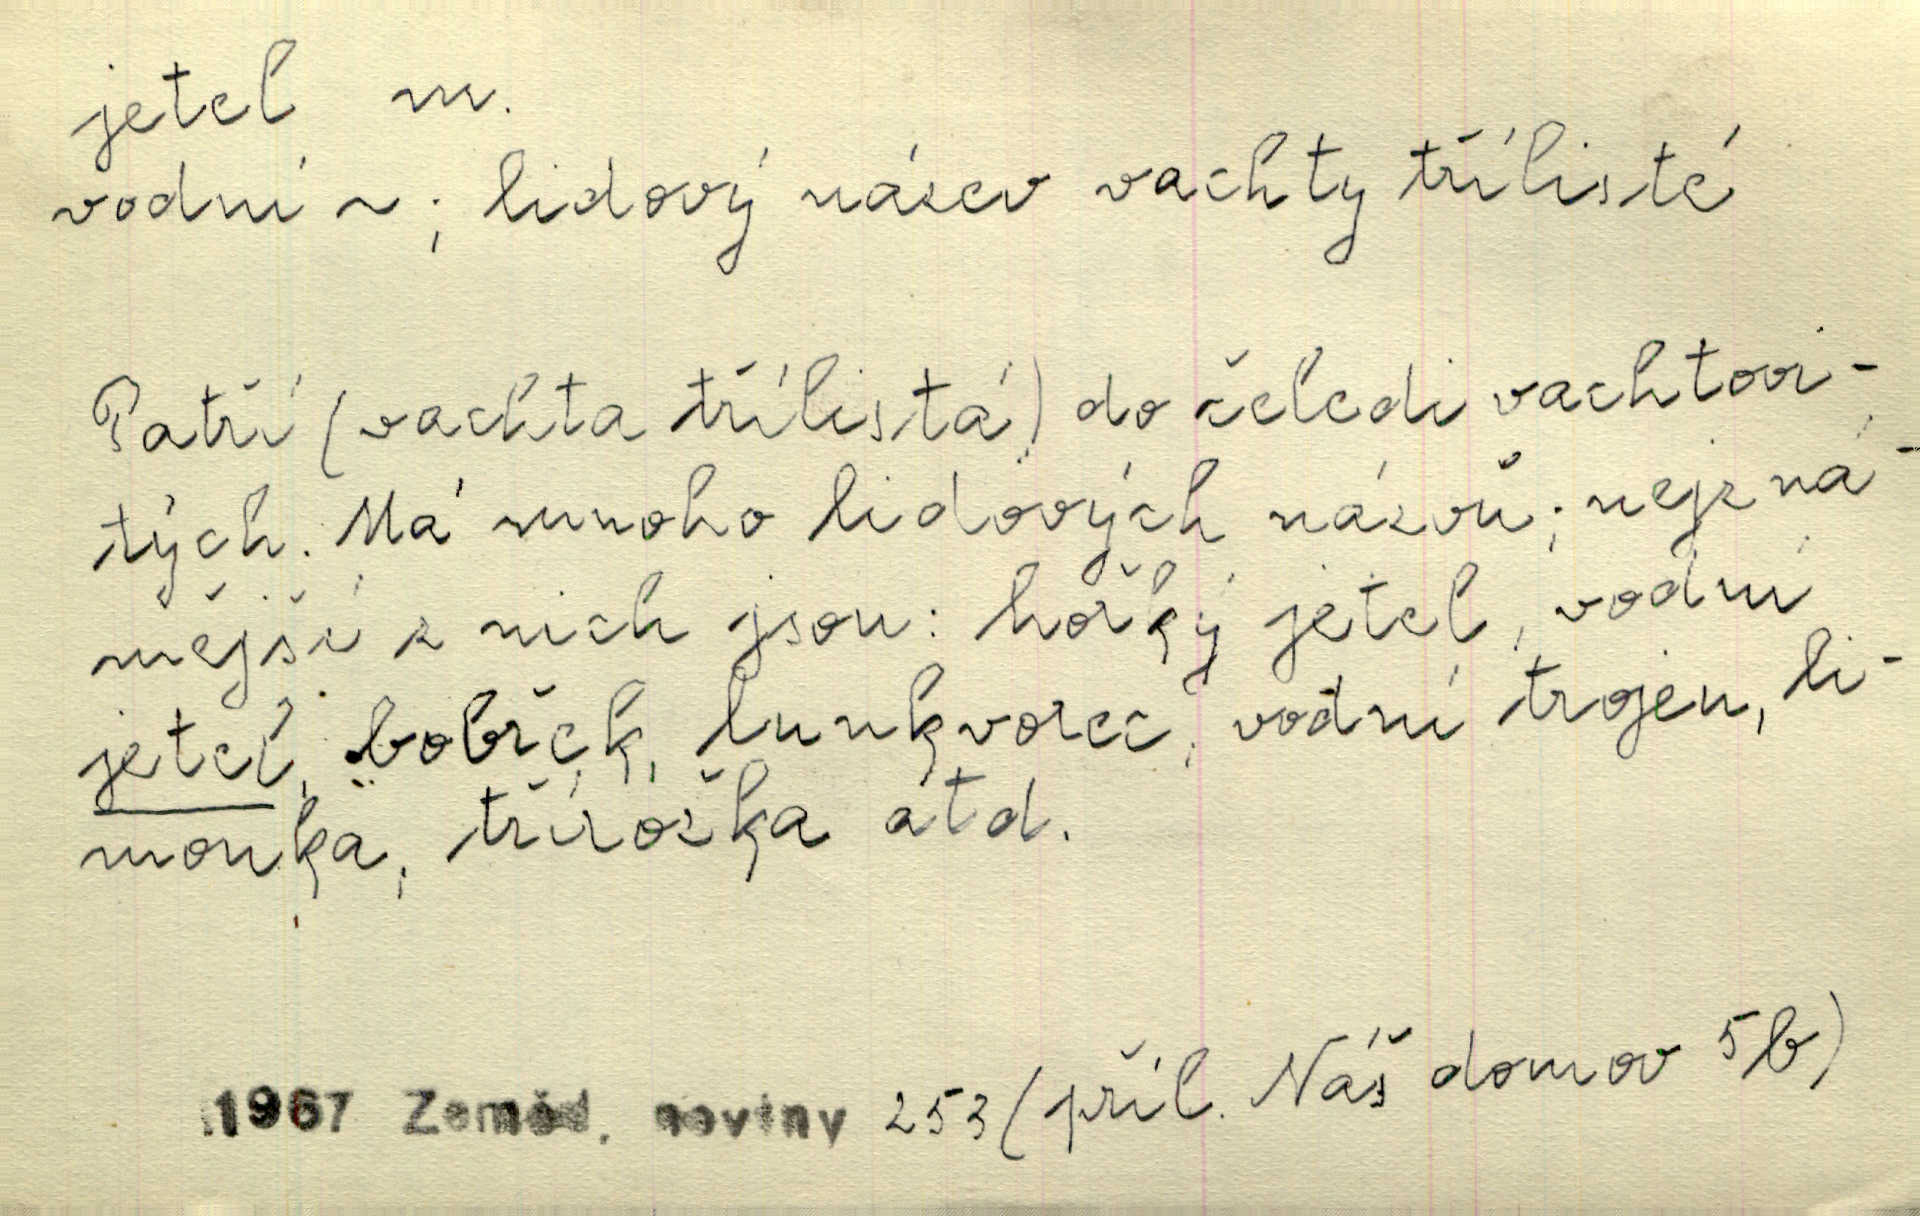 jetel m.
vodní ~; lidový název vachty třílisté
Patří (vachta třílistá) do čeledi vachtovi-
tých. Má mnoho lidových názvů; nejzná-
mější z nich jsou: hořký jetel, vodní
jetel, bobřek, lunkvoreč, vodní trojen, li-
monka, tříročka atd.
1967 Zeměd. noviny 253 (příl. Náš domov 5b)